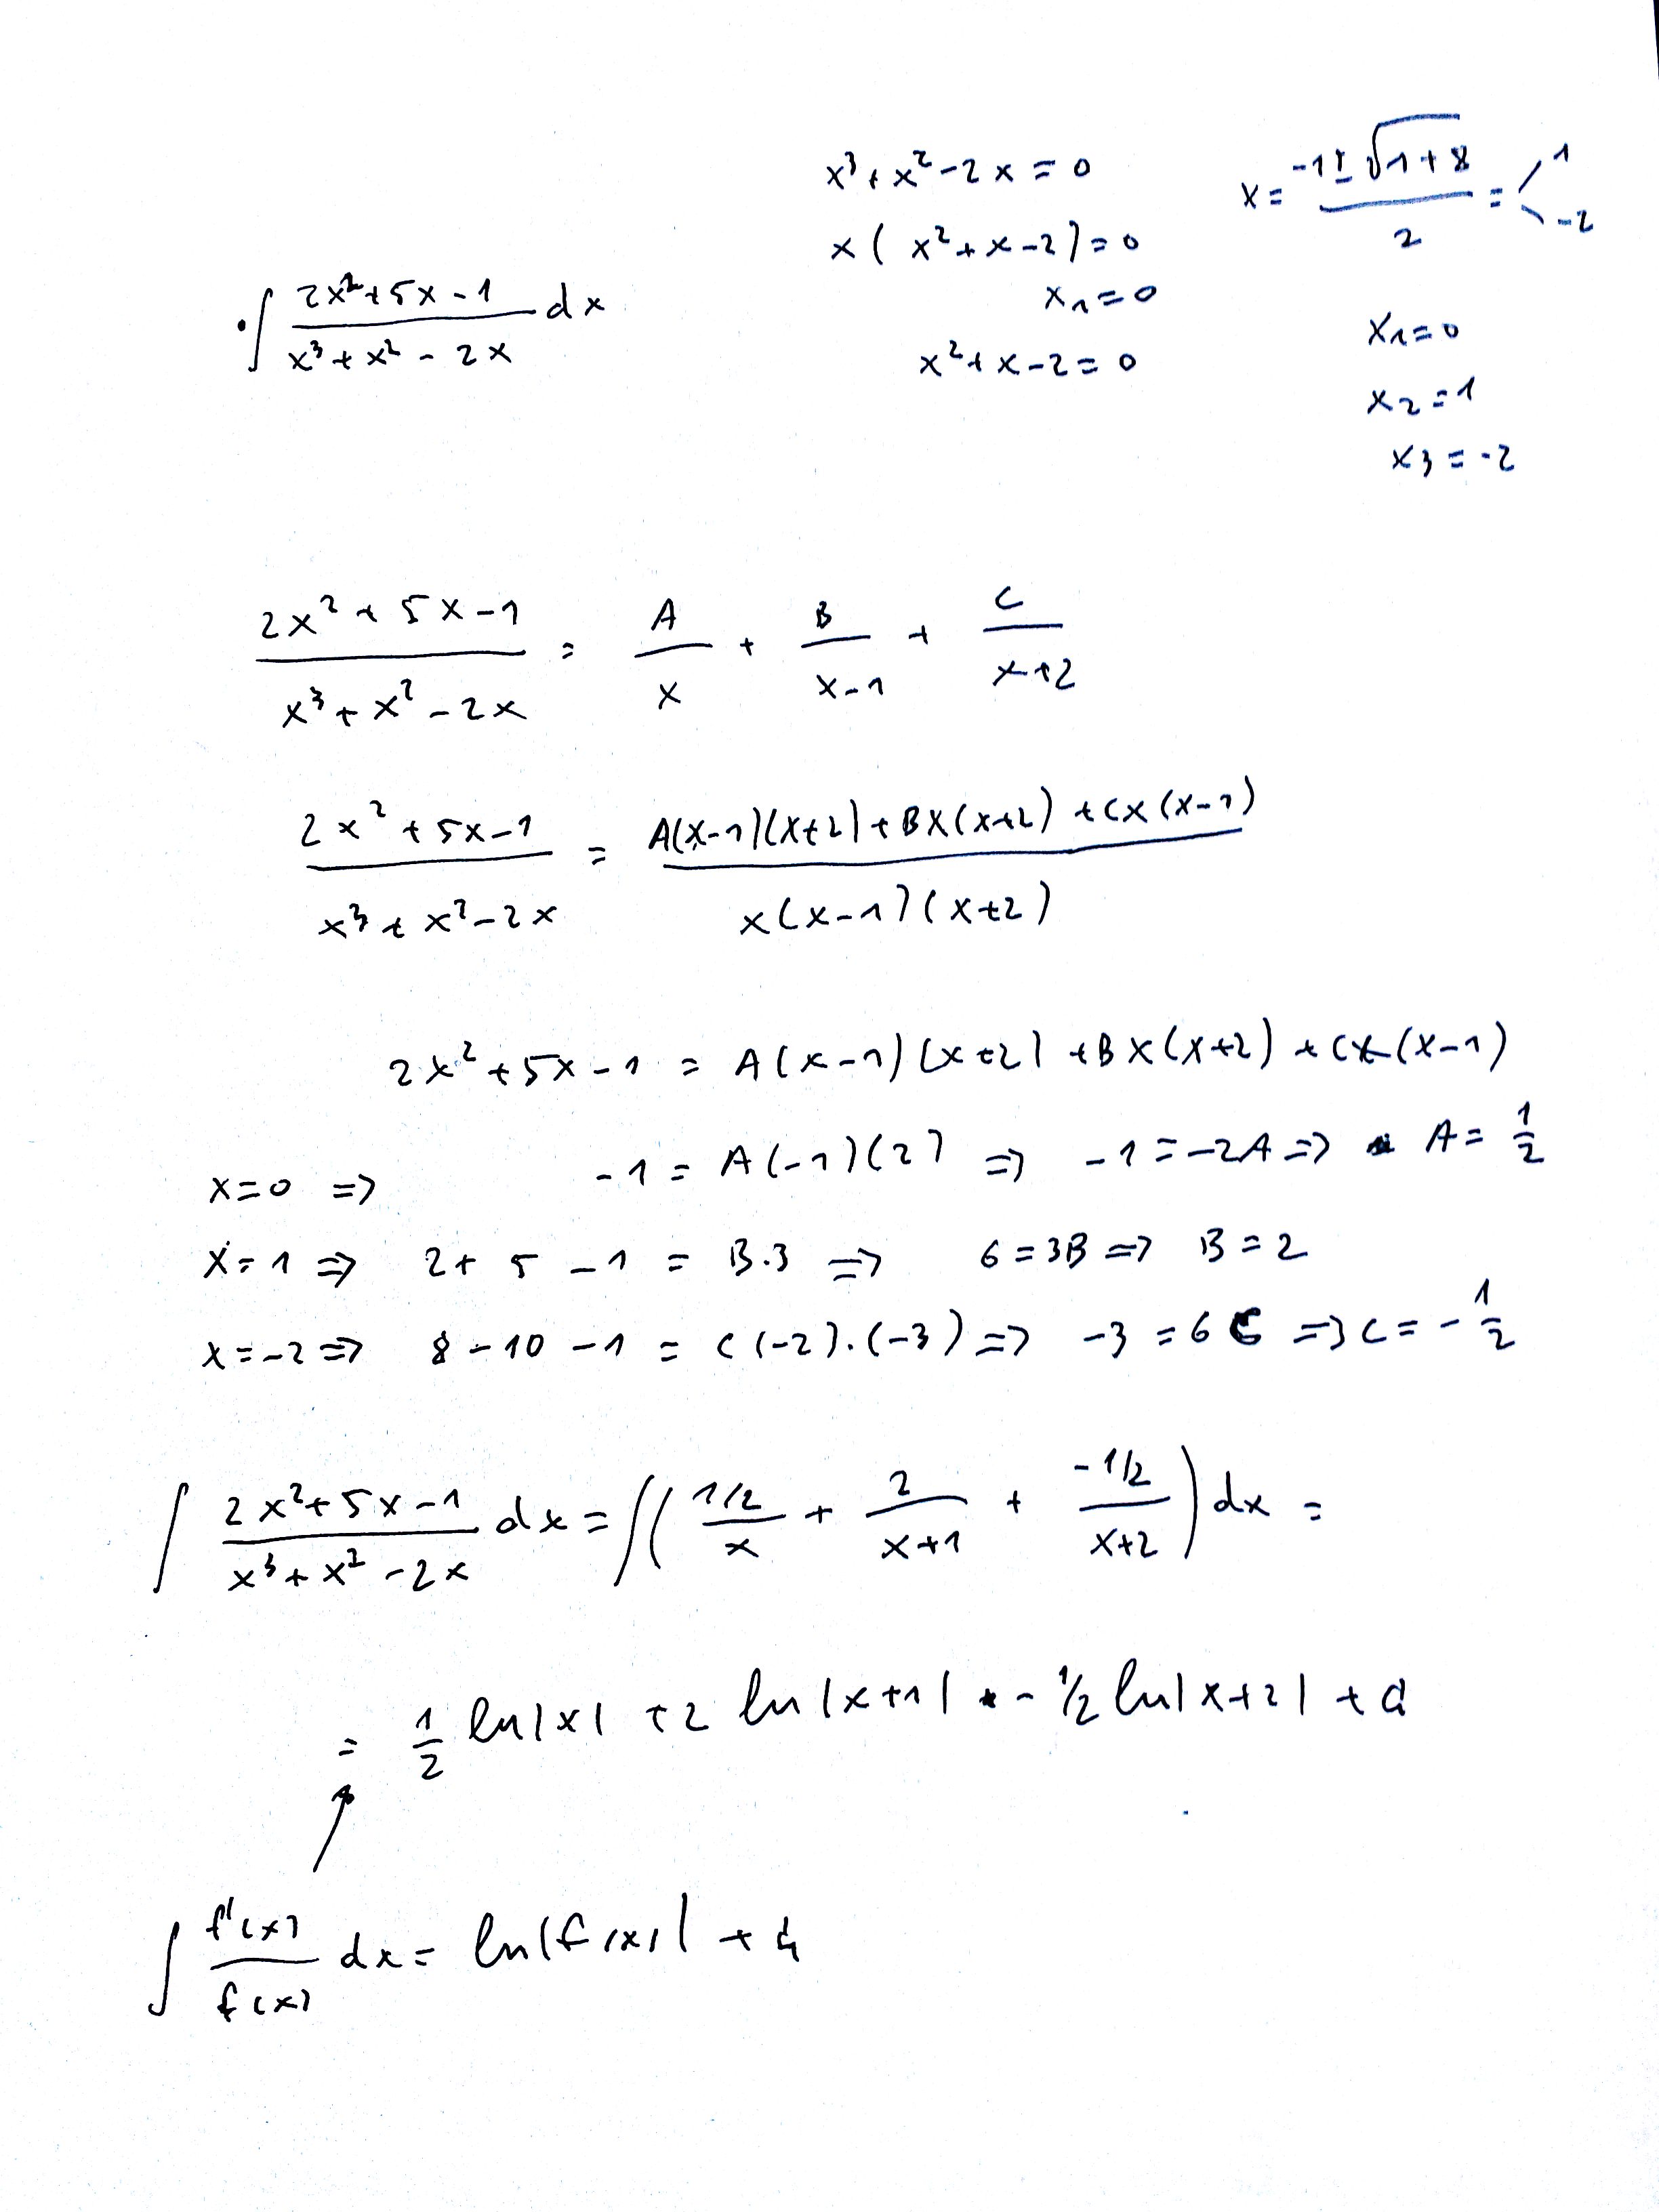 x³ + x² - 2x = 0
x = (-1 ± √(1+8)) / 2 = 1, -2
x ( x² + x - 2 ) = 0
x₁ = 0
x² + x - 2 = 0
x₁ = 0
x₂ = 1
x₃ = -2
• ∫ (2x² + 5x - 1)/(x³ + x² - 2x) dx
(2x² + 5x - 1)/(x³ + x² - 2x) = A/x + B/(x-1) + C/(x+2)
(2x² + 5x - 1)/(x³ + x² - 2x) = (A(x-1)(x+2) + Bx(x+2) + Cx(x-1))/(x(x-1)(x+2))
2x² + 5x - 1 = A(x-1)(x+2) + Bx(x+2) + Cx(x-1)
x=0 => -1 = A(-1)(2) => -1 = -2A => A = 1/2
x=1 => 2 + 5 - 1 = B·3 => 6 = 3B => B = 2
x=-2 => 8 - 10 - 1 = C(-2)·(-3) => -3 = 6C => C = -1/2
∫ (2x² + 5x - 1)/(x³ + x² - 2x) dx = ∫( (1/2)/x + 2/(x+1) + (-1/2)/(x+2) ) dx =
= 1/2 ln|x| + 2 ln|x+1| - 1/2 ln|x+2| +
∫ f'(x)/f(x) dx = ln|f(x)| +